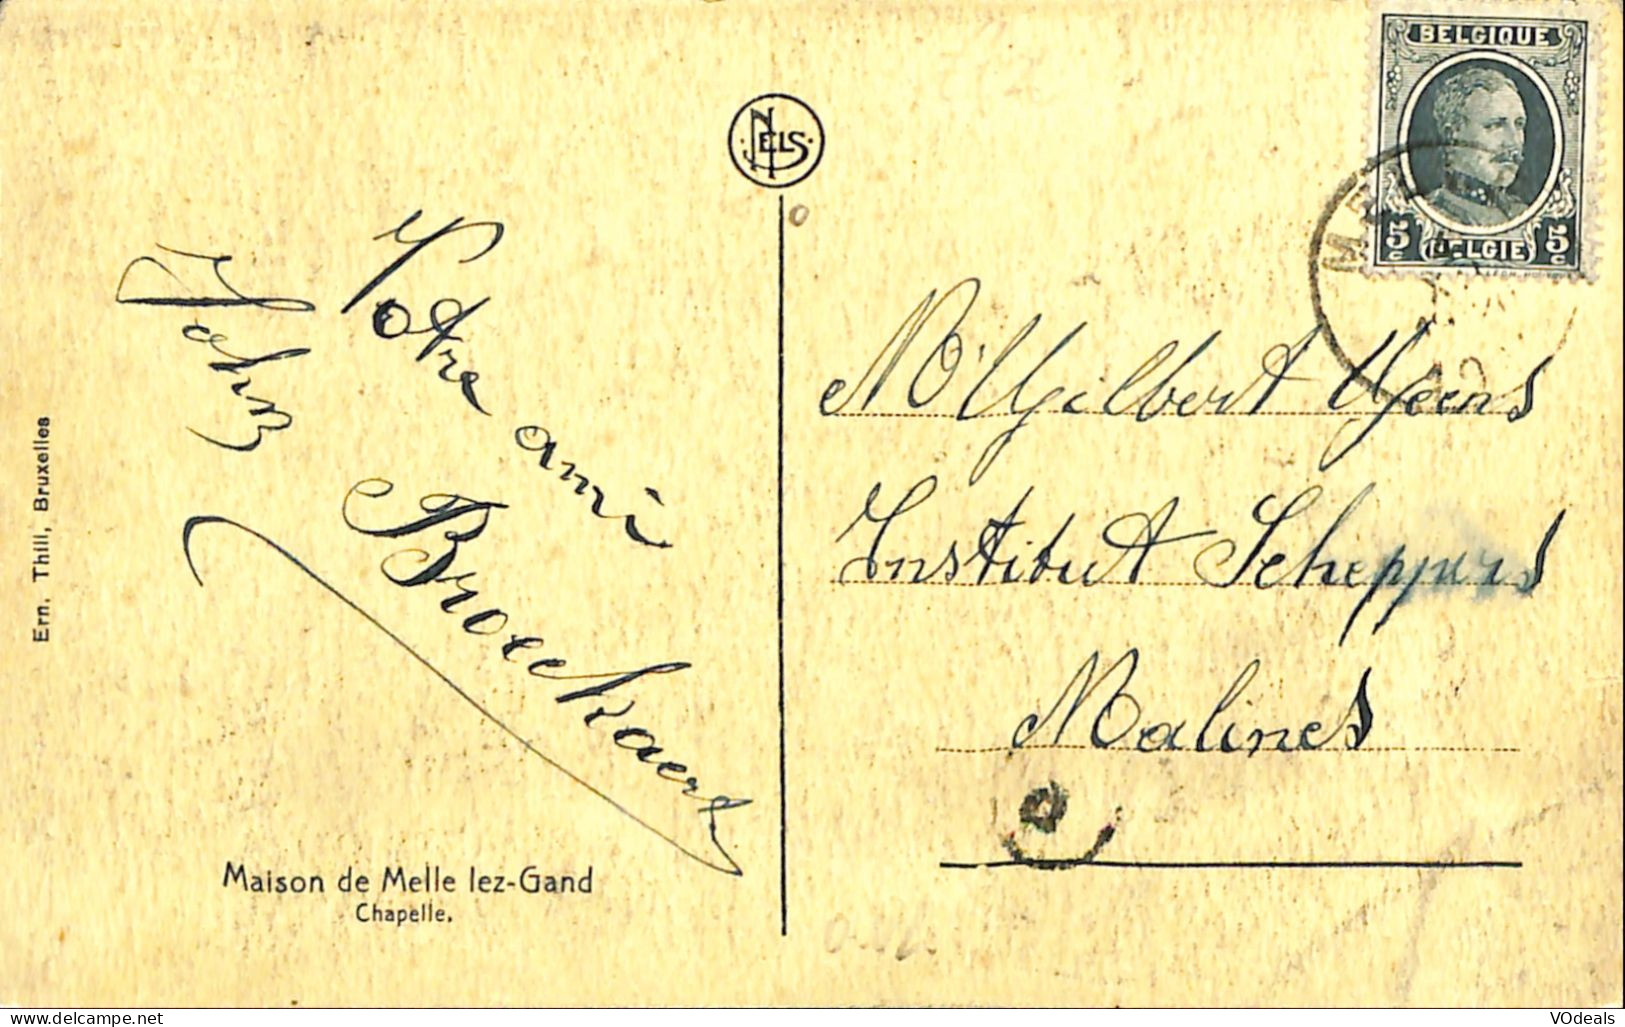 BELGIQUE
5c BELGIE 5c
NELS
Votre ami
John
Broeckaert
Mr Gilbert Geens
Institut Scheppers
Malines
Ern. Thill, Bruxelles
Maison de Melle lez-Gand
Chapelle.
VOdeals
www.delcampe.net